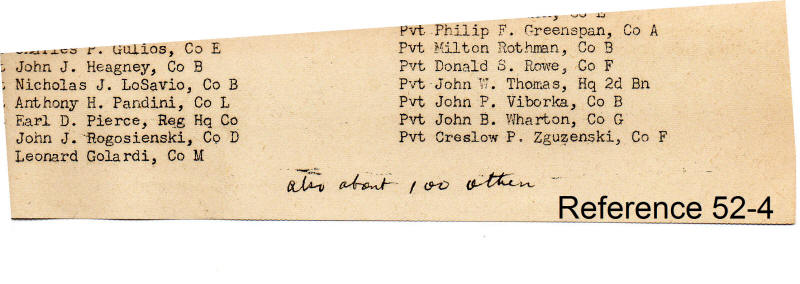 Charles P. Gulios, Co E
John J. Heagney, Co B
Nicholas J. LoSavio, Co B
Anthony H. Pandini, Co L
Earl D. Pierce, Reg Hq Co
John J. Rogosienski, Co D
Leonard Golardi, Co M
Pvt Philip F. Greenspan, Co A
Pvt Milton Rothman, Co B
Pvt Donald S. Rowe, Co F
Pvt John W. Thomas, Hq 2d Bn
Pvt John P. Viborka, Co B
Pvt John B. Wharton, Co G
Pvt Creslow P. Zguzenski, Co F
also about 100 others
Reference 52-4